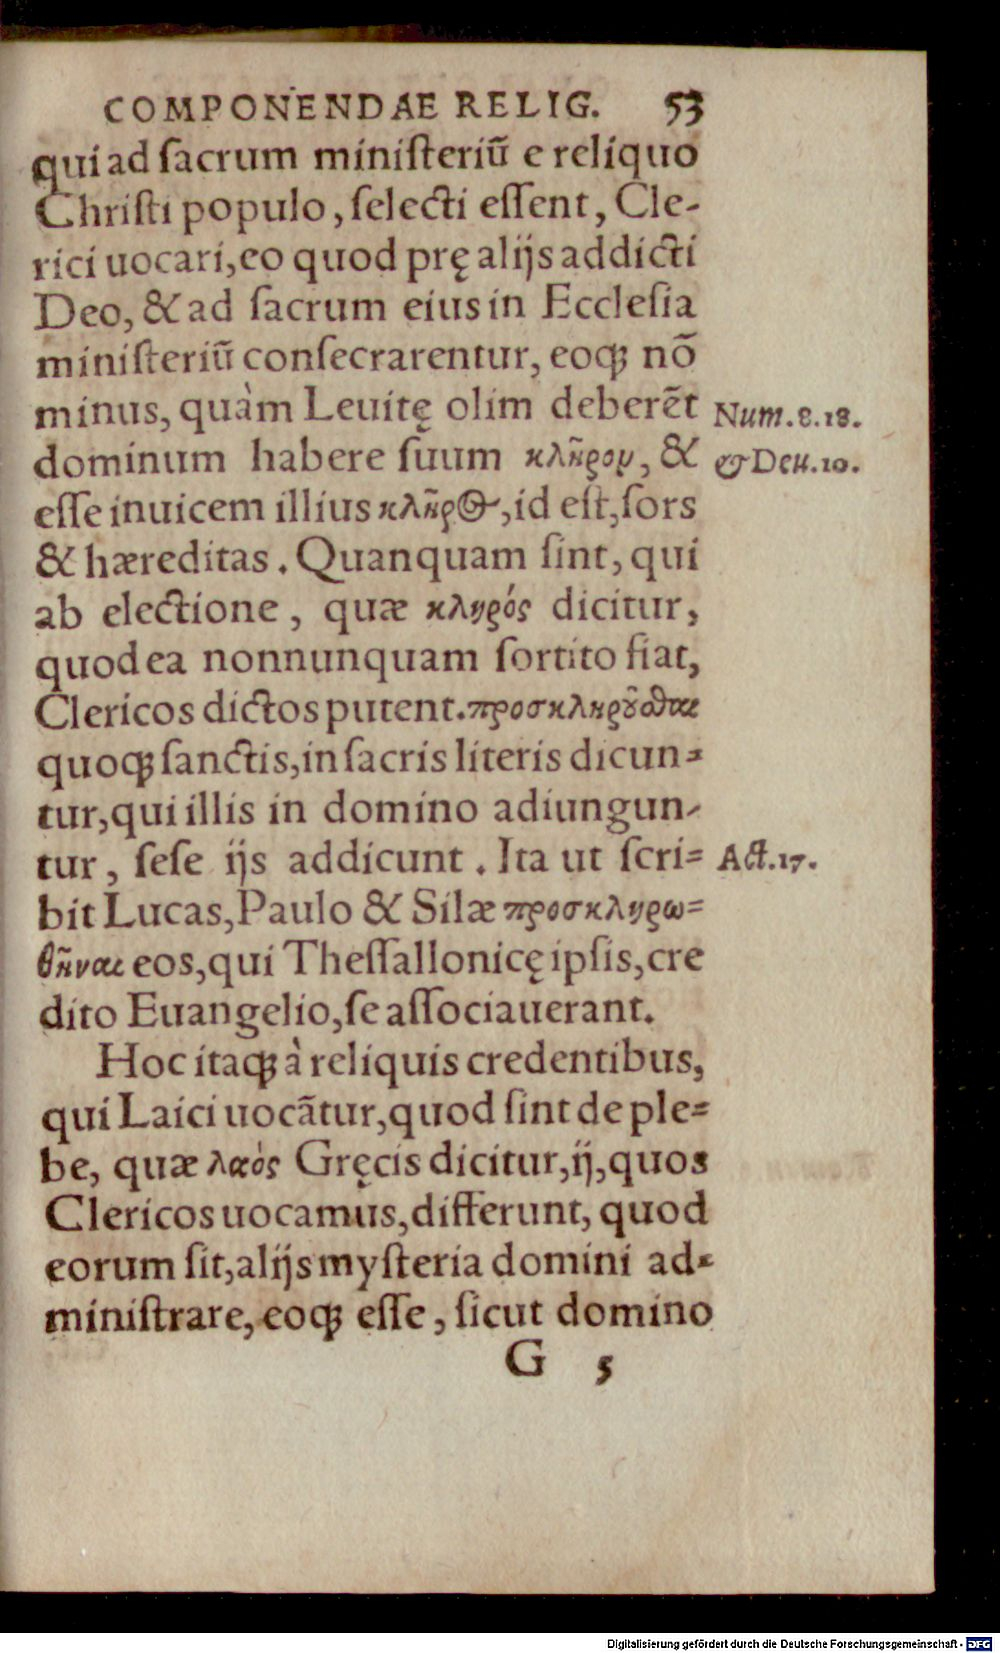 COMPONENDAE RELIG. 53
qui ad ſacrum miniſteriũ e reliquo
Chriſti populo, ſelecti eſſent, Cle-
rici uocari, eo quod prę alijs addicti
Deo, & ad ſacrum eius in Eccleſia
miniſteriũ conſecrarentur, eoq́; nõ
minus, quàm Leuitę olim deberẽt
Num. 8. 18.
dominum habere ſuum κλῆρον, &
& Deu. 10.
eſſe inuicem illius κλῆρος, id eſt, ſors
& hæreditas. Quanquam ſint, qui
ab electione, quæ κληρός dicitur,
quod ea nonnunquam ſortito fiat,
Clericos dictos putent. προσκληροῦσθαι
quoq; ſanctis, in ſacris literis dicun-
tur, qui illis in domino adiungun-
tur, ſeſe ijs addicunt. Ita ut ſcri-
Act. 17.
bit Lucas, Paulo & Silæ προσκληρω-
θῆναι eos, qui Theſſallonicę ipſis, cre
dito Euangelio, ſe aſſociauerant.
Hoc itaq; à reliquis credentibus,
qui Laici uocãtur, quod ſint de ple-
be, quæ λαὸς Gręcis dicitur, ij, quos
Clericos uocamus, differunt, quod
eorum ſit, alijs myſteria domini ad-
miniſtrare, eoq; eſſe, ſicut domino
G 5
Digitalisierung gefördert durch die Deutsche Forschungsgemeinschaft - DFG